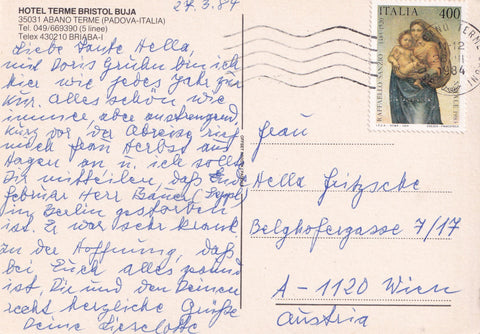 27.3.84
HOTEL TERME BRISTOL BUJA
35031 ABANO TERME (PADOVA-ITALIA)
Tel. 049/669390 (5 linee)
Telex 430210 BRIABA-I
Liebe Tante Hella,
mit Doris Gruhn bin ich
hier wie jedes Jahr zur
Kur. Alles schön wie
immer, aber anstrengend.
Kurz vor der Abreise rief
mich Frau Herbst aus
Hagen an u. ich sollte
Dir mitteilen, daß Ende
Februar Herr Bauer
in Berlin gestorben
ist. Er war sehr krank
In der Hoffnung, daß
bei Euch alles gesund
ist. Dir und den Deinen
recht herzliche Grüße
Deine Lieselotte
ITALIA 400
RAFFAELLO SANZIO
1984
Frau
Hella Fritzsche
Belghofergasse 7/17
A-1120 Wien
Austria